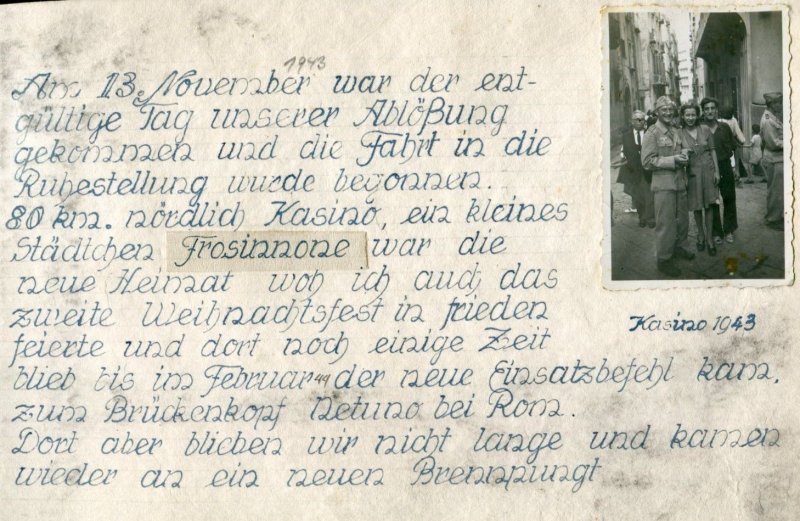 1943
Am 13. November war der ent-
gültige Tag unserer Ablößung
gekommen und die Fahrt in die
Ruhestellung wurde begonnen.
80 km. nördlich Kasino, ein kleines
Städtchen Frosinnone war die
neue Heimat woh ich auch das
zweite Weihnachtsfest in frieden
feierte und dort noch einige Zeit
blieb bis im Februar 44 der neue Einsatzbefehl kam,
zum Brückenkopf Netuno bei Rom.
Dort aber blieben wir nicht lange und kamen
wieder an ein neuen Brennpungt
Kasino 1943